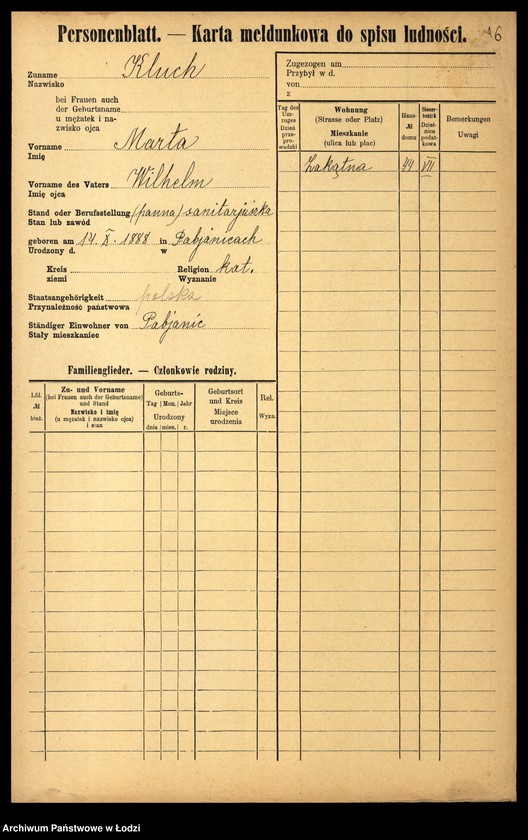 Personenblatt. — Karta meldunkowa do spisu ludności.
16
Zuname Kluch
Nazwisko
bei Frauen auch
der Geburtsname
u mężatek i na-
zwisko ojca
Vorname Marta
Imię
Vorname des Vaters Wilhelm
Imię ojca
Stand oder Berufsstellung (panna) sanitarjuszka
Stan lub zawód
geboren am 14. X. 1888 in Pabjanicach
Urodzony d. w
Kreis Religion kat.
ziemi Wyznanie
Staatsangehörigkeit polska
Przynależność państwowa
Ständiger Einwohner von Pabjanic
Stały mieszkaniec
Zugezogen am
Przybył w d.
von
z
Tag des Um-zuges
Dzień prze-pro-wadzki
Wohnung
(Strasse oder Platz)
Mieszkanie
(ulica lub plac)
Haus-
№
domu
Steuer-bezirk
Dziel-nica podat-kowa
Bemerkungen
Uwagi
Zakątna 44 VII
Familienglieder. — Członkowie rodziny.
Lfd.
№
bież.
Zu- und Vorname
(bei Frauen auch der Geburtsname)
und Stand
Nazwisko i imię
(u mężatek i nazwisko ojca)
i stan
Geburts-
Tag Mon. Jahr
Urodzony
dnia mies. r.
Geburtsort
und Kreis
Miejsce
urodzenia
Rel.
Wyzn.
Archiwum Państwowe w Łodzi